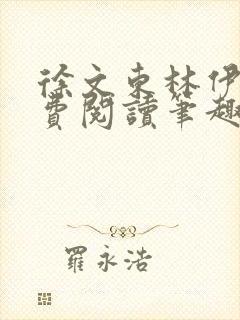 徐文東林伊
費閱讀筆趣
羅永浩